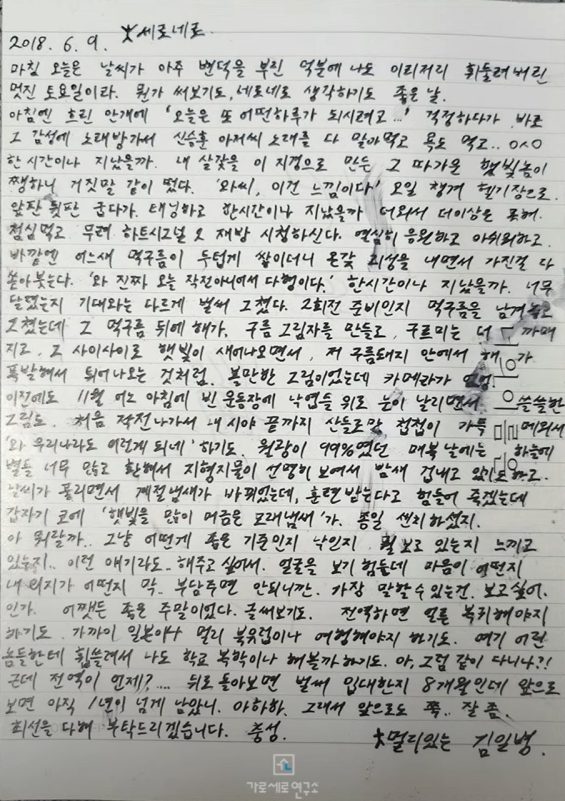 2018. 6. 9. ★세로네로
마침 오늘은 날씨가 아주 변덕을 부린 덕분에 나도 이리저리 휘둘려버린
멋진 토요일이라. 뭔가 써보기도, 세로네로 생각하기도 좋은 날.
아침엔 흐린 안개에 '오늘은 또 어떤하루가 되시려고...' 걱정하다가 바로
그 감성에 노래방가서 신승훈 아저씨 노래를 다 말아먹고 욕도 먹고.. 0ㅅ0
한시간이나 지났을까. 내 살갗을 이 지경으로 만든 그 따가운 햇빛놈이
쨍하니 거짓말 같이 떴다. '와씨, 이건 느낌이다' 오일 챙겨 헬기장으로.
앞판 뒷판 굽다가. 태닝하고 한시간이나 지났을까 더와서 더이상은 못해.
점심먹고 무려 하트시그널 2 재방 시청하신다. 열심히 응원하고 아쉬워하고.
바깥엔 어느새 먹구름이 두텁게 쌓이더니 온갖 괴성을 내면서 가진걸 다
쏟아붓는다. '와 진짜 오늘 작전아니어서 다행이다.' 한시간이나 지났을까. 너무
달랬는지 기대와는 다르게 벌써 그쳤다. 2회전 준비인지 먹구름을 남겨놓고
그쳤는데 그 먹구름 뒤에 해가. 구름 그림자를 만들고, 구르미는 더 까매
지고, 그 사이사이로 햇빛이 새어나오면서, 저 구름돼지 안에서 해가
폭발해서 튀어나오는 것처럼. 볼만한 그림이었는데 카메라가
이전에도 11월 어느 아침에 빈 운동장에 낙엽들 위로 눈이 날리면서 쓸쓸한
그림도. 처음 작전나가서 내 시야 끝까지 산들로만 첩첩이 가득 메워서
'와 우리나라도 이렇게 되네' 하기도. 월광이 99%였던 매복날에는 하늘에
별들 너무 많고 환해서 지형지물이 선명히 보여서 밤새 겁내고 있기도하고.
날씨가 풀리면서 계절냄새가 바뀌었는데, 훈련받는다고 힘들어 죽겠는데
갑자기 코에 '햇빛을 많이 머금은 모래냄새'가. 종일 센치하셨지.
아 뭐랄까.. 그냥 어떻게 좋은 기준인지 낙인지, 뭘 보고 있는지 느끼고
있는지.. 이런 얘기라도. 해주고 싶어서. 얼굴을 보기 힘든데 마음이 어떤지
내 의지가 어떤지 막.. 부담주면 안되니깐. 가장 말할 수 있는건. 보고싶어.
인가. 어쨋든 좋은 주말이었다. 글써보기도. 전역하면 얼른 복귀해야지
하기도. 가까이 일본이나 멀리 북유럽이나 여행해야지 하기도. 여기 어린
놈들한테 휩쓸려서 나도 학교 복학이나 해볼까 하기도. 아, 그럼 같이 다니나?!
근데 전역이 언제?.... 뒤로 돌아보면 벌써 입대한지 8개월인데 앞으로
보면 아직 1년이 넘게 남았니. 아하하. 그래서 앞으로도 쭉.. 잘 좀.
최선을 다해 부탁드리겠습니다. 충성.
★멀리있는 김일병.
나의 이름은
가로세로연구소